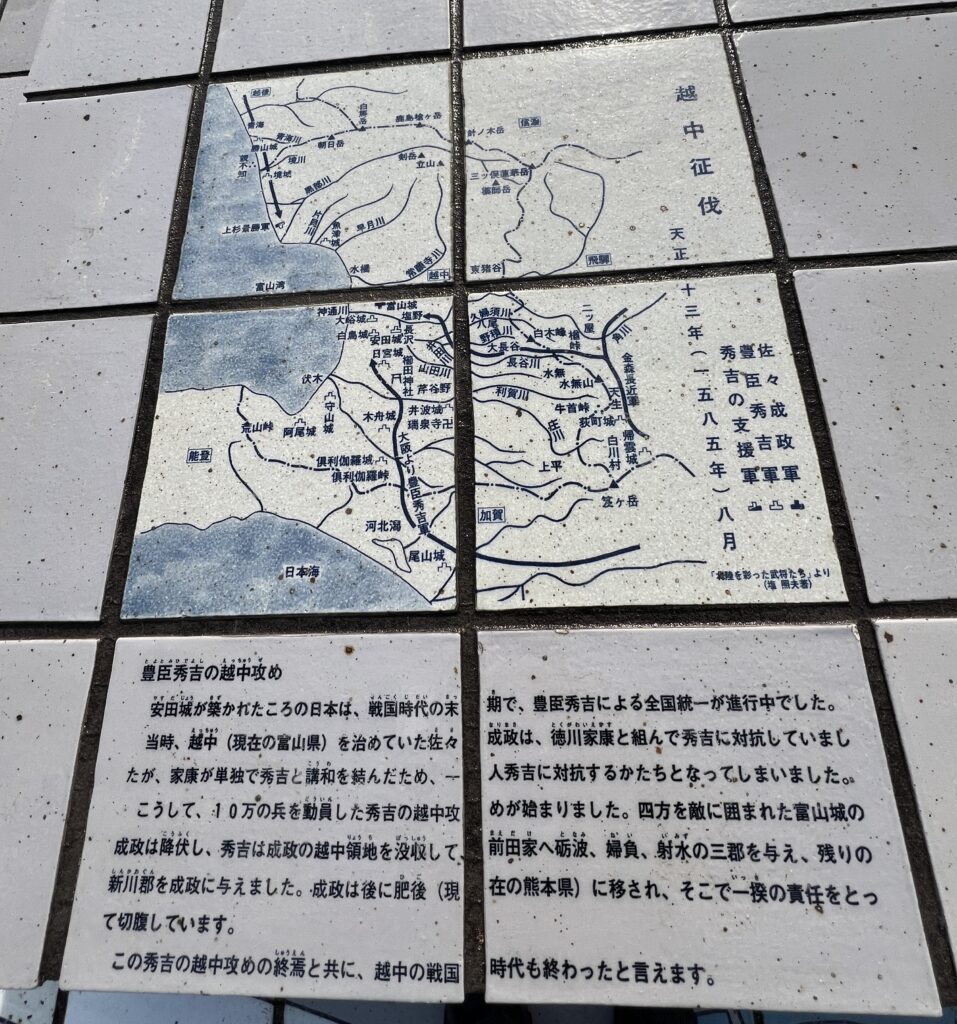 越中征伐
天正十三年(一五八五年)八月
佐々成政軍
豊臣秀吉軍
秀吉の支援軍
越後
青海
青海川
勝山城
親不知
境川
境城
朝日岳
白馬岳
鹿島槍ヶ岳
針ノ木岳
信濃
剣岳
立山
三ッ俣蓮華岳
薬師岳
黒部川
片貝川
魚津城
早月川
上杉景勝軍
常願寺川
水橋
越中
富山湾
東猪谷
飛騨
神通川
富山城
大峪城
塩野
白鳥城
安田城
長沢
日宮城
牛田川
山田川
櫛田神社
芹谷野
伏木
守山城
木舟城
井波城
瑞泉寺卍
荒山峠
阿尾城
能登
倶利伽羅城
倶利伽羅峠
大阪より豊臣秀吉軍
河北潟
尾山城
日本海
久婦須川
八尾
野積川
大長谷
長谷川
白木峰
楢峠
二ッ屋
角川
水無
水無山
金森長近軍
利賀川
牛首峠
天生
荻町城
帰雲城
庄川
白川村
上平
笈ヶ岳
加賀
「北陸を彩った武将たち」より
(塩 照夫著)
豊臣秀吉の越中攻め
安田城が築かれたころの日本は、戦国時代の末期で、豊臣秀吉による全国統一が進行中でした。
当時、越中(現在の富山県)を治めていた佐々成政は、徳川家康と組んで秀吉に対抗していまし
たが、家康が単独で秀吉と講和を結んだため、一人秀吉に対抗するかたちとなってしまいました。
こうして、10万の兵を動員した秀吉の越中攻めが始まりました。四方を敵に囲まれた富山城の
成政は降伏し、秀吉は成政の越中領地を没収して、前田家へ砺波、婦負、射水の三郡を与え、残りの
新川郡を成政に与えました。成政は後に肥後(現在の熊本県)に移され、そこで一揆の責任をとっ
て切腹しています。
この秀吉の越中攻めの終焉と共に、越中の戦国時代も終わったと言えます。